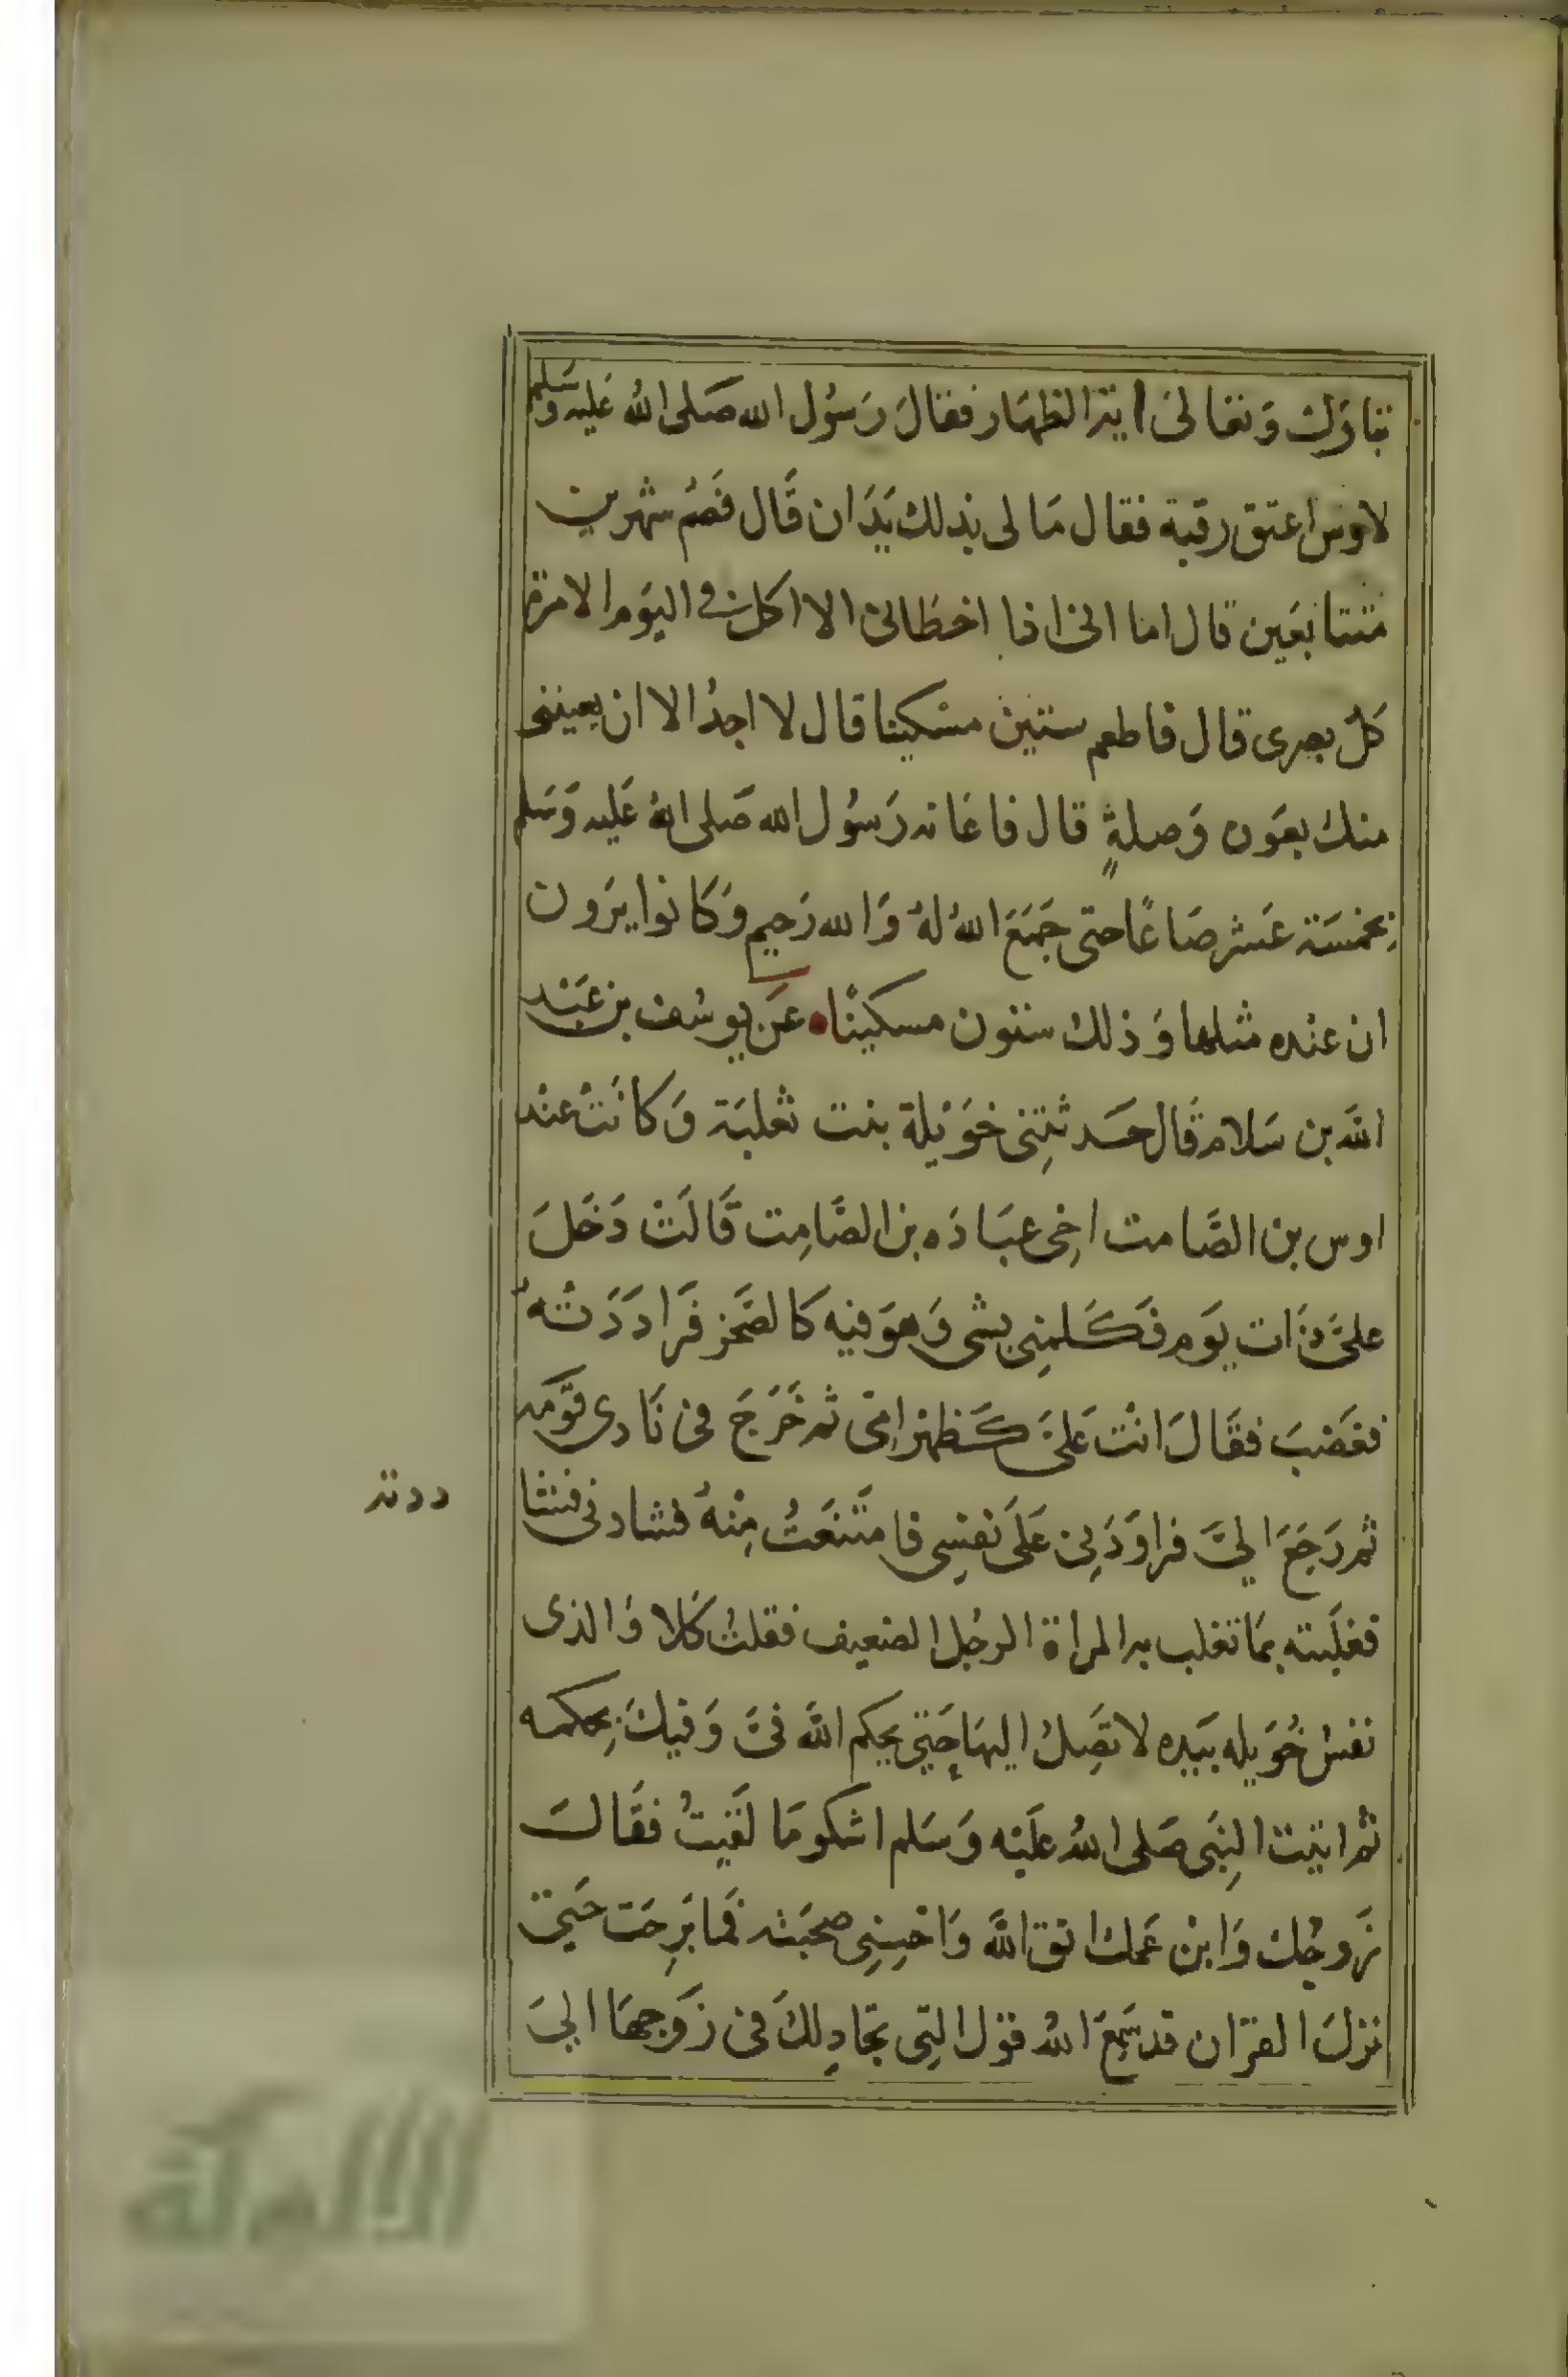 تبارك وَتعَالىٰ اية الظهَار فقالَ رَسوُل الله صَلى اللهُ عَليه وَسَلم
لاوس اعتق رقبة فقال مَا لى بذلك يَدَان قَال فصُم شهرين
متتابعَين قال اما انى اذا اخطانى الا اكل فى اليوَم الا مرة
كلّ بصرى قال فاطعم ستين مسْكينا قال لا اجدُ الا ان يعيننى
منك بعَون وَصلةٍ قال فاعَانه رَسوُل الله صَلى اللهُ عَليه وَسَلم
بخمسَة عَشر صَاعًا حتى جَمَعَ اللهُ لهُ وَالله رَحيم وَكانوا يرَون
ان عنْده مثلها وَذلك ستون مسكينًا عَن يوسُف بن عَبْد
الله بن سَلام قَال حَدثتِنى خوَيْلة بنت ثعْلبَة وَكانَتْ عنْد
اوس بن الصَّامت اخِى عبَادَه بن الصَّامِت قَالَتْ دَخَلَ
علىَّ ذَات يوَم فكَلمنِى بشى وَهوَ فيه كالضَجَر فَرَادَدَتْهُ
فغَضبَ فقَالَ انْت عَلىَّ كَظهْر امِّى ثم خَرَجَ فى نَادى قوَمَه
ثم رَجَعَ الىَّ فراوَدَنِى عَلىَ نفسِى فامتَنَعَتُ مِنْهُ فشادنى فشا
ددته
فغلَبته بمَا تغلب به المراة الرجُل الضعيف فقلتُ كلا وَالذى
نفسُ خُوَيله بيَده لا تصَِلُ اليهَا حَتِى يحكم اللهَ فىَّ وَفيكَ بِحكمه
ثم اتيْت النِبَى صَلى اللهُ عَليْه وَسَلم اشكو مَا لَقيتُ فقَالَ
زَوجُك وَابْن عَمك اتق اللهَ وَاحْسِنِى صحبَته فمَا بَرِحَت حَتىَ
نزلَ القرَان قد سَمِعَ اللهُ قوَل التِى تجَادِلكَ فى زَوجهَا الىَ
الألوكة